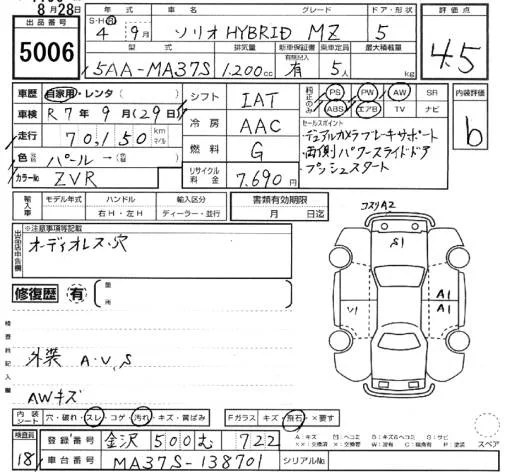 8月28日
年式 車名 グレード ドア・形状 評価点
出品番号 5006
S・H・R 4 9月 ソリオHYBRID MZ 5 4.5
型式 排気量 新車保証書 乗車定員 最大積載量
5AA-MA37S 1,200cc 有 5人 kg
車歴 自家用・レンタ( ) シフト IAT 純正のみ PS PW AW SR 内装評価
ABS エアB TV ナビ
車検 R7年9月(29日) 冷房 AAC セールスポイント b
・デュアルカメラブレーキサポート
走行 70,150 km マイル 燃料 G ・両側パワースライドドア
色 パール→ ・プッシュスタート
カラーNo ZVR リサイクル料金 7,690円
輸入車 モデル年式 ハンドル 輸入区分 書類有効期限
右H・左H ディーラー・並行 月 日迄
コスリA2
出品店申告欄 ※注意事項等記載
オーディオレス・穴
S1
修復歴 有 箇所
V1 A1 A1
検査員記入欄
外装 A・U,S
AWキズ
内装シート 穴・破れ・スレ・コゲ・汚れ・キズ・黄ばみ Fガラス キズ・飛石・×要す
検査員 登録番号 金沢500む722 スペア
18 車台番号 MA37S-138701 シリアルNo